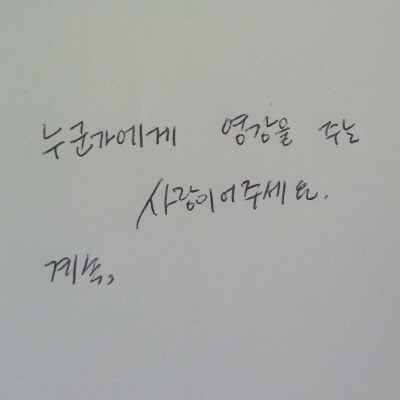 누군가에게 영감을 주는
사랑이어주세요.
계속,